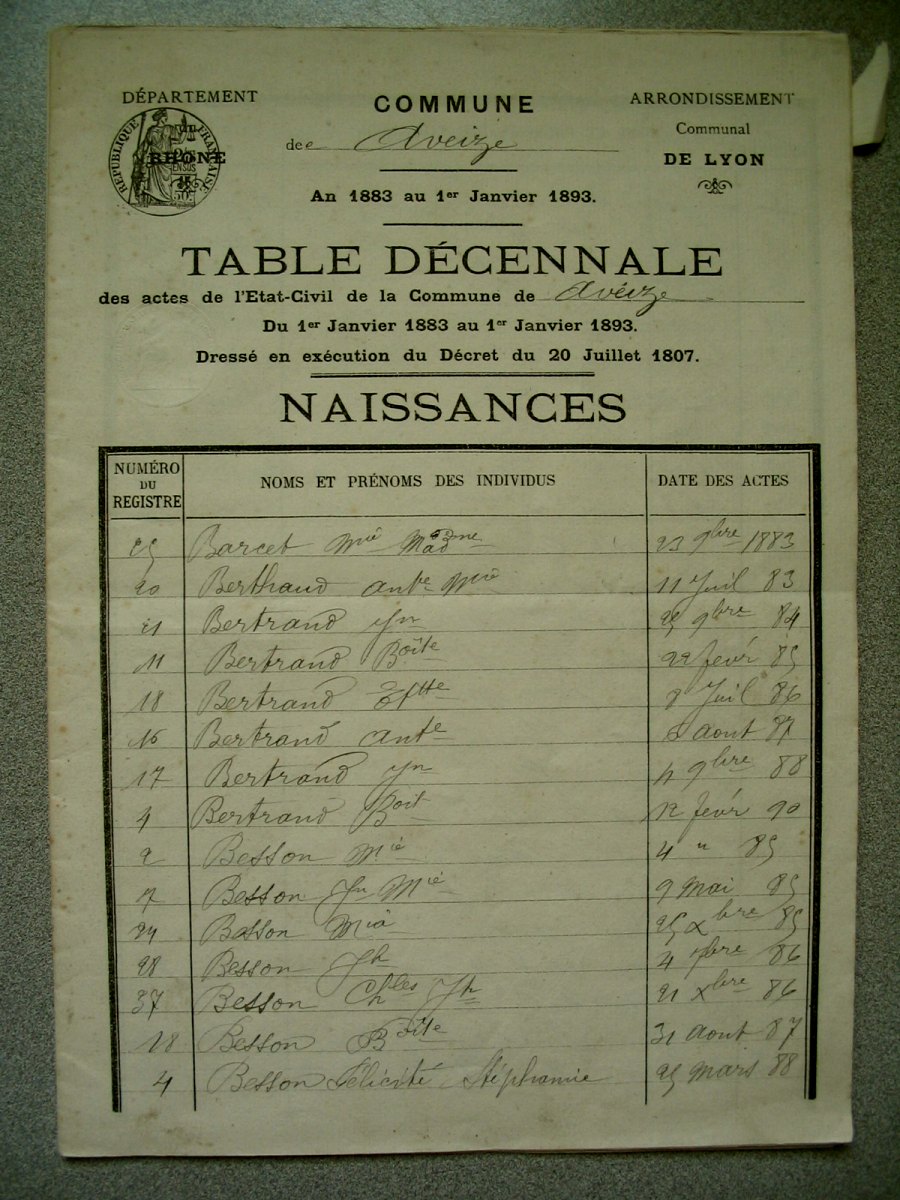 DÉPARTEMENT
RÉPUBLIQUE FRANÇAISE
RHÔNE
COMMUNE
de Aveize
ARRONDISSEMENT
Communal
DE LYON
An 1883 au 1er Janvier 1893.
TABLE DÉCENNALE
des actes de l'Etat-Civil de la Commune de Aveize
Du 1er Janvier 1883 au 1er Janvier 1893.
Dressé en exécution du Décret du 20 Juillet 1807.
NAISSANCES
NUMÉRO DU REGISTRE NOMS ET PRÉNOMS DES INDIVIDUS DATE DES ACTES
25 Barcet Mie 23 9bre 1883
20 Berthaud Ante Mie 11 Juil 83
21 Bertrand Jn 25 9bre 84
11 Bertrand Boîte 22 fevr 85
18 Bertrand Juil 86
16 Bertrand Ante Aout 87
17 Bertrand Jn 4 9bre 88
4 Bertrand Boit 12 fevr 90
2 Besson Mie 4 " 85
7 Besson Jn Mie 9 Mai 85
Besson Mie 25 Xbre 85
28 Besson Jh 4 86
37 Besson Chles Jh 21 Xbre 86
18 Besson Boîte 31 Aout 87
4 Besson Félicité Stéphanie 25 Mars 88